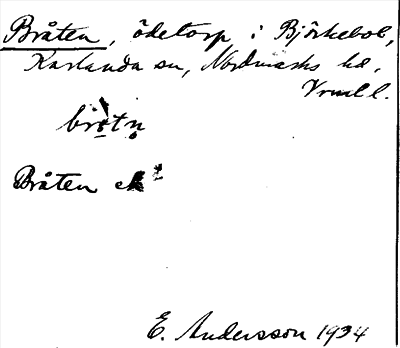 Bråten, ödetorp i Björkebol,
Karlanda sn, Nordmarks hd,
Vrml l.
bròtn̥
Bråten ek
E. Andersson 1934